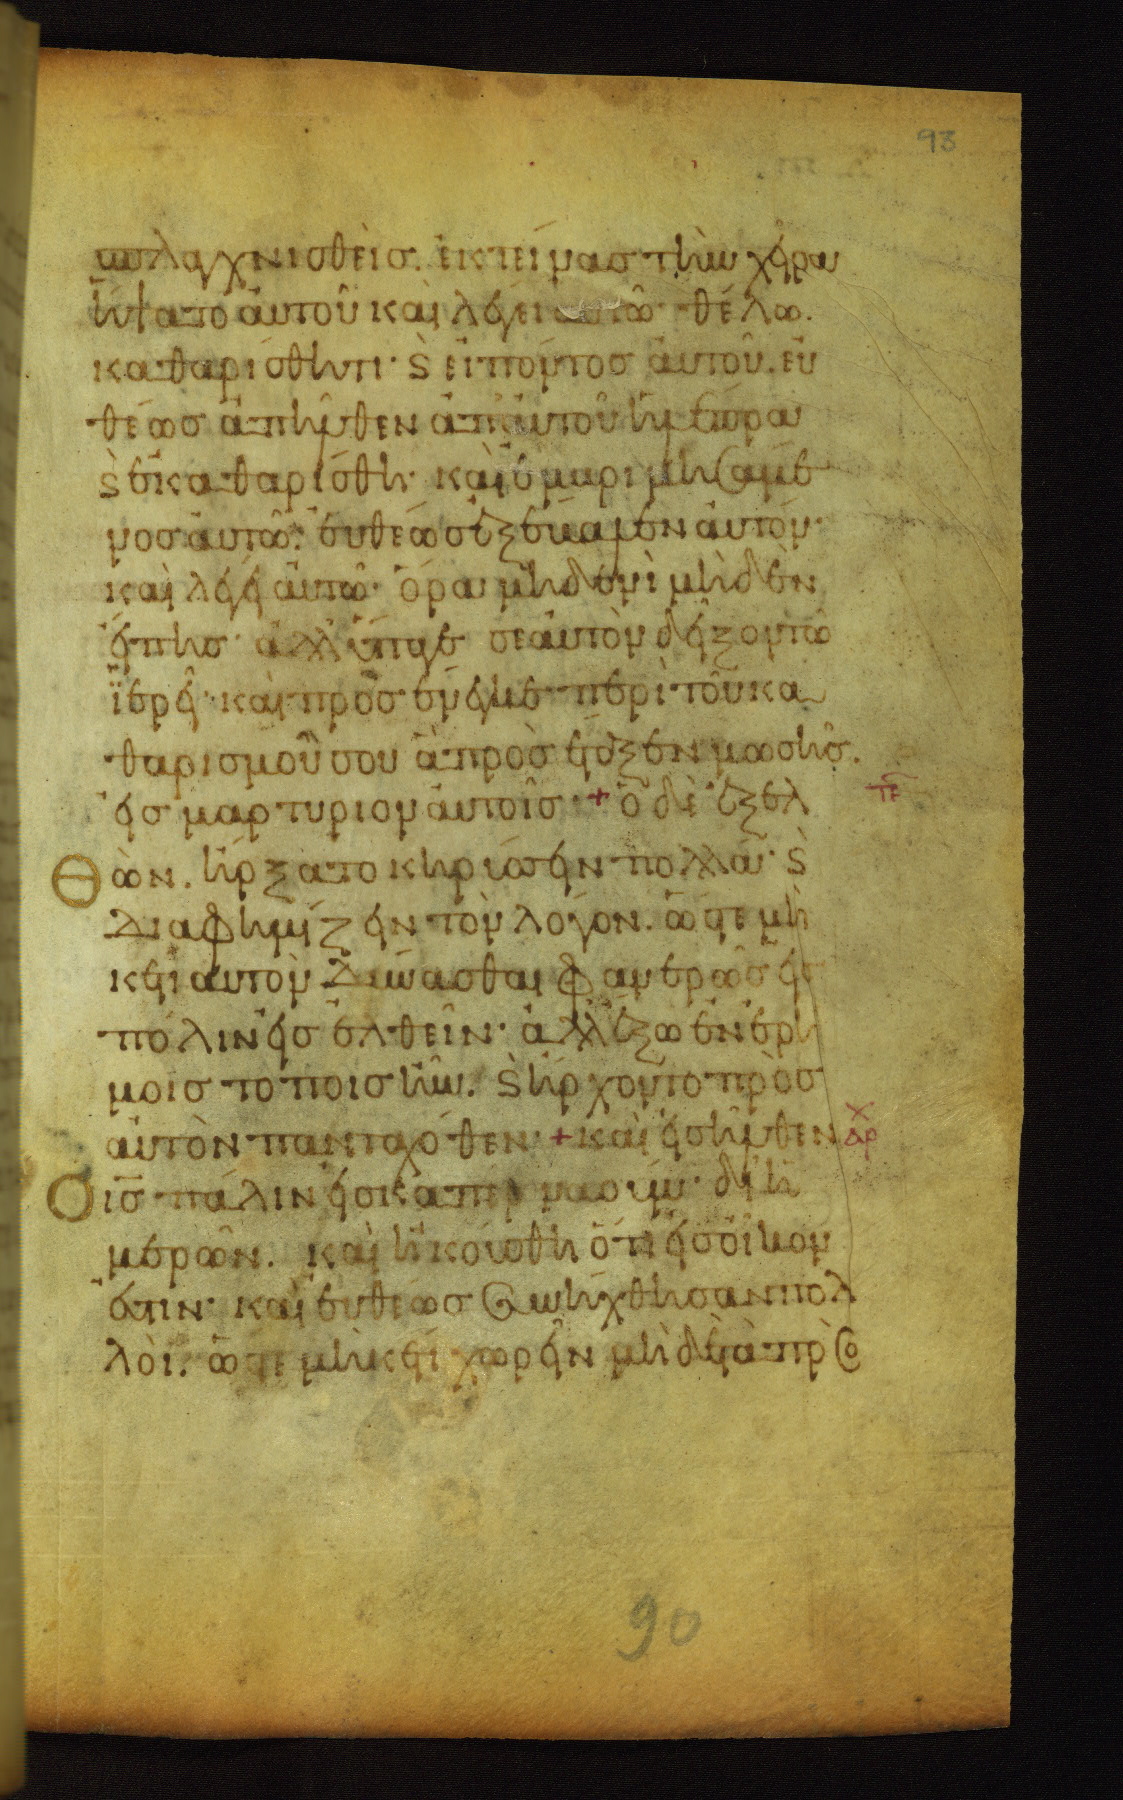 93
σπλαγχνισθεὶς. ἐκτείνας τὴν χεῖρα
ἥψατο αὐτοῦ καὶ λέγει αὐτῶ· θέλω.
καθαρίσθητι· ϛ̀ εἰπόντος αὐτοῦ. εὐ
θέως ἀπῆλθεν ἀπ' αὐτοῦ ἡ λέπρα
ϛ̀ ἐκαθαρίσθη· καὶ ἐμβριμησάμε
νος αὐτῶ· εὐθέως ἐξέβαλεν αὐτόν·
καὶ λέγει αὐτῶ· ὅρα μηδενὶ μηδὲν
εἴπης· ἀλλ' ὕπαγε σεαυτὸν δεῖξον τῶ
ἱερεῖ· καὶ προσένεγκε περὶ τοῦ κα
θαρισμοῦ σου ἃ προσέταξεν μωσῆς.
εἰς μαρτύριον αὐτοῖς· + ὁ δὲ ἐξελ
τε
θὼν. ἤρξατο κηρύσσειν πολλά· ϛ̀
διαφημίζειν τὸν λόγον. ὥστε μη
κέτι αὐτὸν δύνασθαι φανερῶς εἰς
πόλιν εἰσελθεῖν· ἀλλ' ἔξω ἐν ἐρή
μοις τόποις ἦν. ϛ̀ ἤρχοντο πρὸς
αὐτὸν πανταχόθεν· + καὶ εἰσῆλθεν
αρχ
ὁ ις πάλιν εἰς καπερναούμ· δι' ἡ
μερῶν. καὶ ἠκούσθη ὅτι εἰς οἶκόν
ἐστιν· καὶ εὐθέως συνήχθησαν πολ
λοὶ. ὥστε μηκέτι χωρεῖν μηδὲ τὰ πρὸς
90